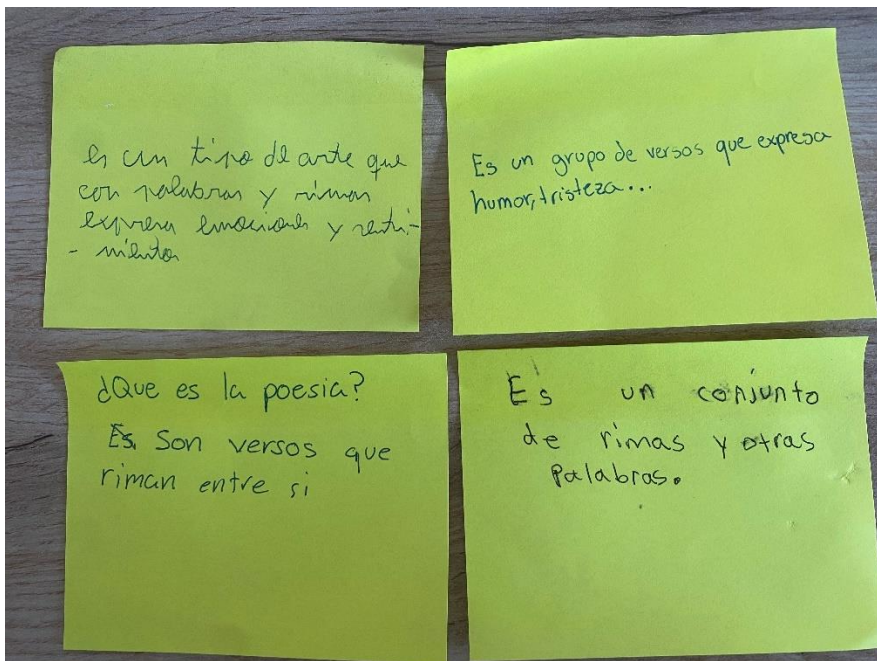 Es un tipo de arte que
con palabras y rimas
expresa emociones y senti-
- mientos
Es un grupo de versos que expresa
humor, tristeza...
¿Que es la poesia?
Es. Son versos que
riman entre si
Es un conjunto
de rimas y otras
Palabras.